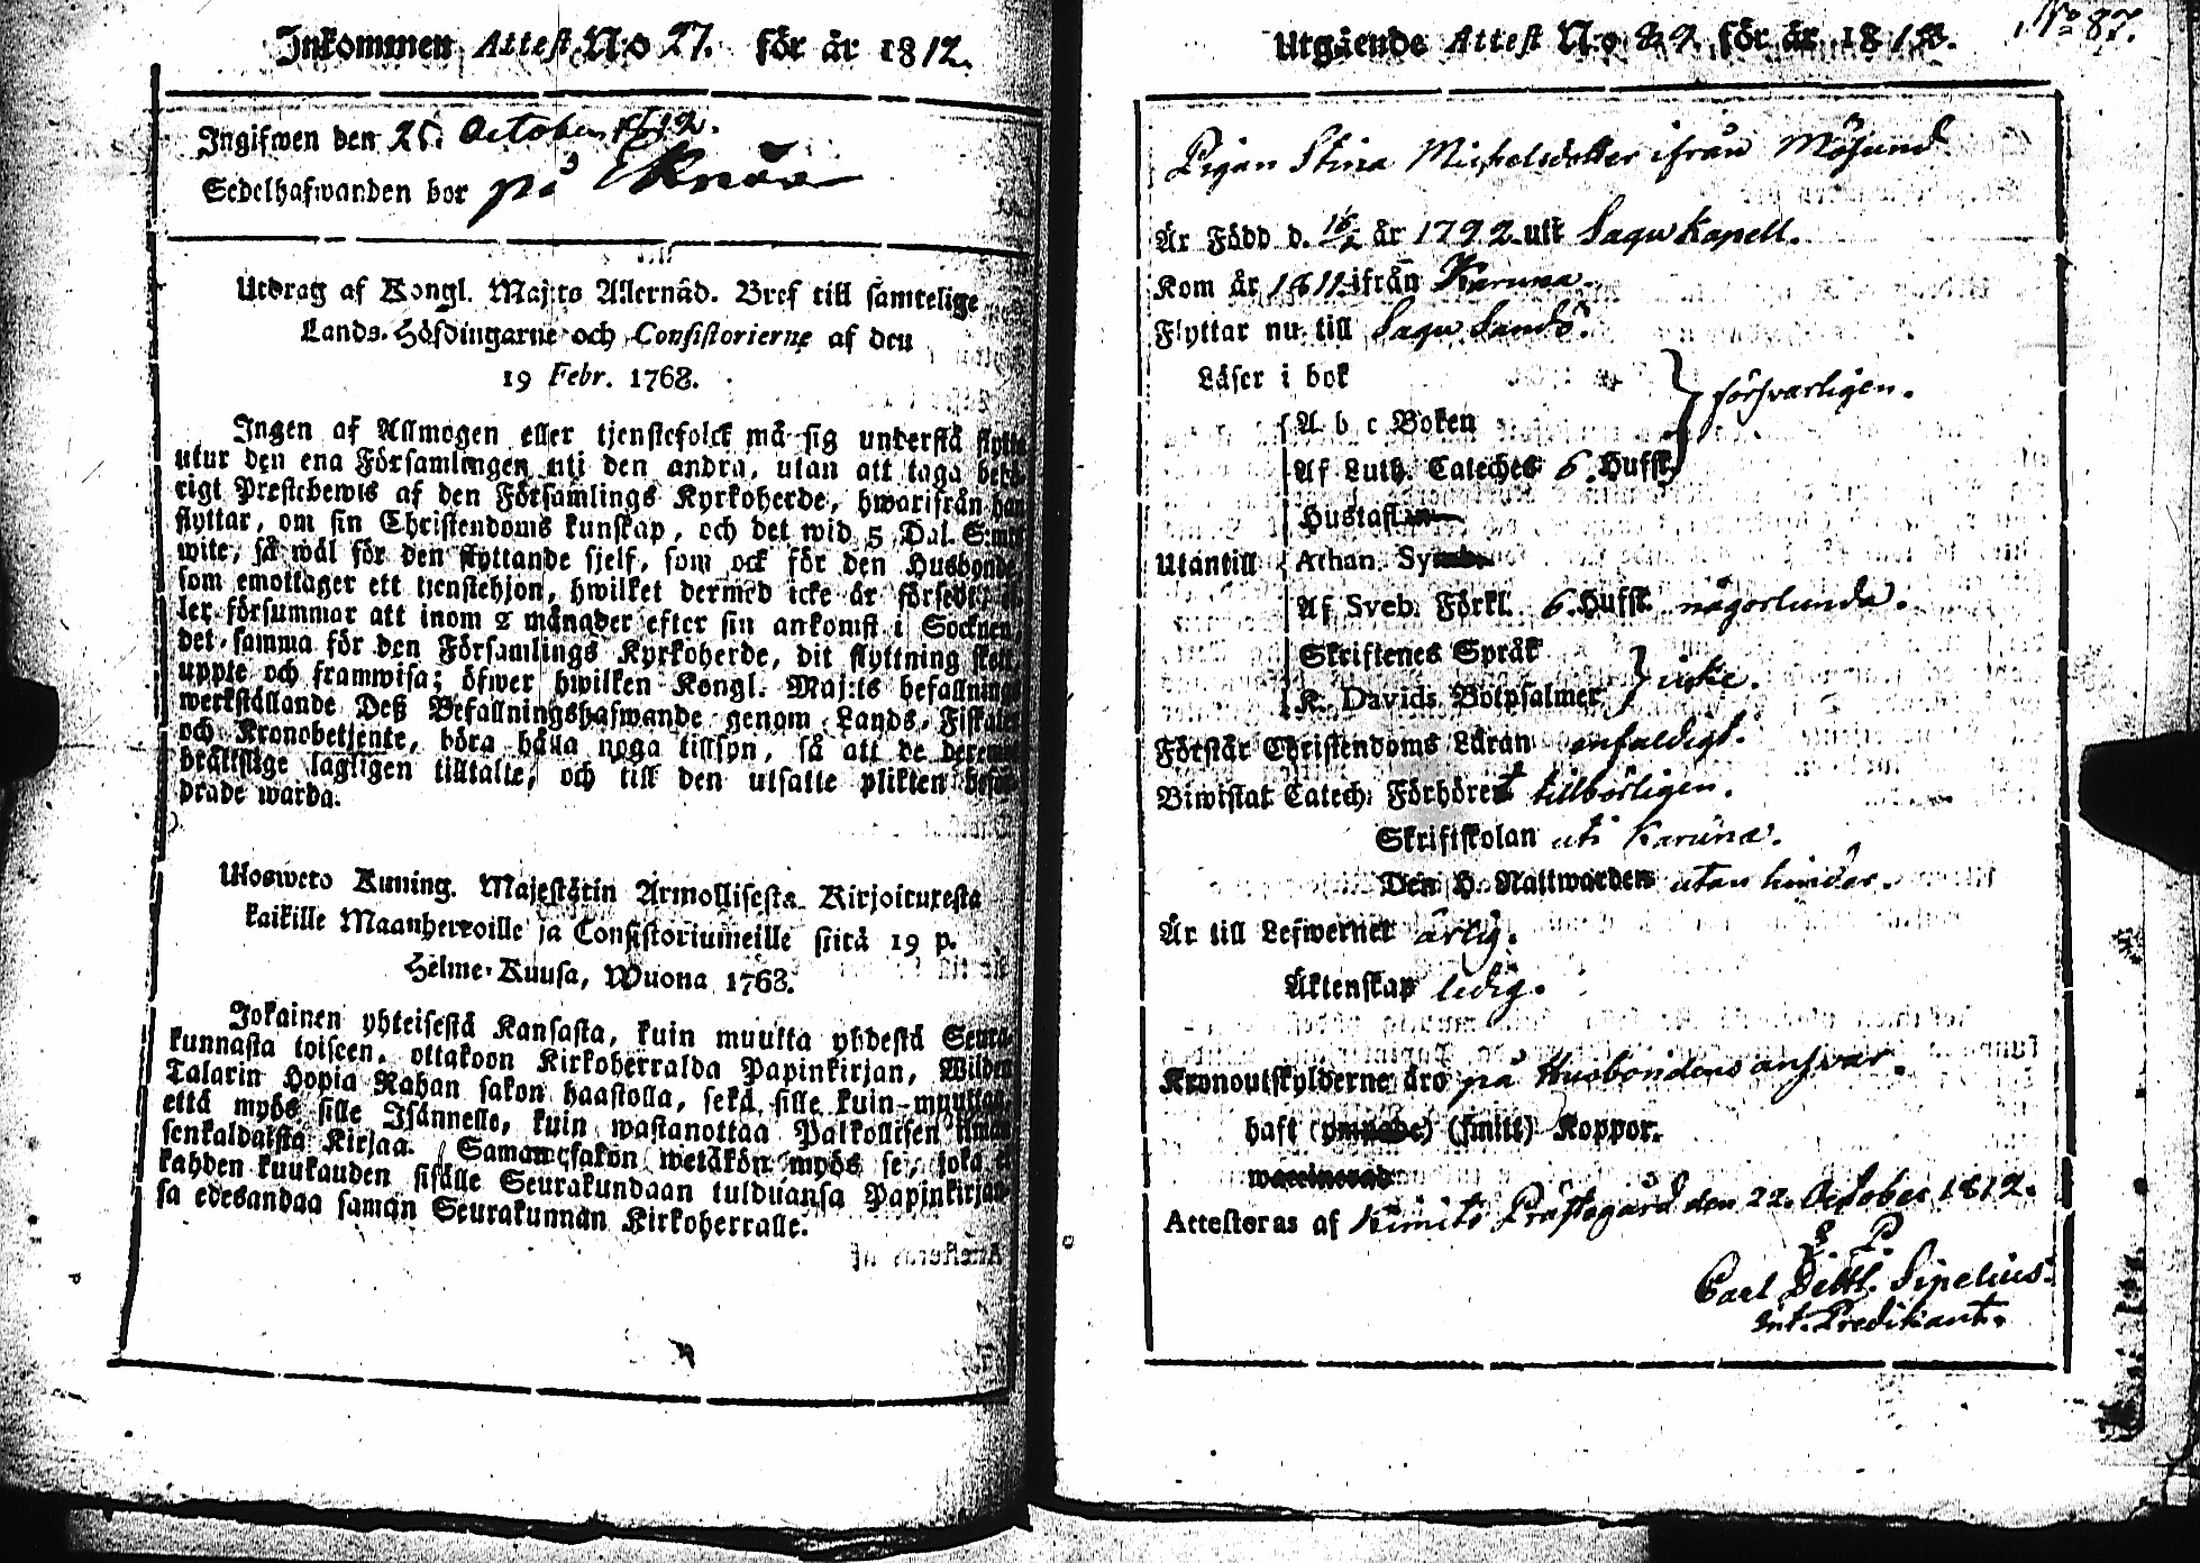 Inkommen Attest No 27. för år 1812.
Ingifwen den 25. October 1812.
Sedelhafwanden bor på Eknöö
Utdrag af Kongl. Maj:ts Allernåd. Bref till samtelige
Lands-Höfdingarne och Consistorierne af den
19 Febr. 1768.
Ingen af Allmogen eller tjenstefolck må sig understå flytta
utur den ena Församlingen uti den andra, utan att taga behö-
rigt Prestebewis af den Församlings Kyrkoherde, hwarifrån han
flyttar, om sin Christendoms kunskap, och det wid 5 Dal. S:mts
wite, så wäl för den flyttande sjelf, som ock för den Husbonde,
som emottager ett tjenstehjon, hwilket dermed icke är försedt, el-
ler försummar att inom 2 månader efter sin ankomst i Socknen,
det samma för den Församlings Kyrkoherde, dit flyttning skett,
uppte och framwisa; öfwer hwilken Kongl. Maj:ts befallnings
werkställande Deß Befallningshafwande genom Lands-Fiskaler
och Kronobetjente, böra hålla noga tillsyn, så att de deremot
bråttslige lagligen tilltalte, och till den utsatte plikten befor-
drade warda.
Ulosweto Kuning. Majestätin Armollisesta Kirjoituxesta
kaikille Maanherroille ja Consistoriumeille siitä 19 p.
Helme-Kuusa, Wuona 1768.
Jokainen yhteisestä Kansasta, kuin muutta yhdestä Seura-
kunnasta toiseen, ottakoon Kirkoherralda Papinkirjan, Wiiden
Talarin Hopia Rahan sakon haastolla, sekä sille kuin muuttaa,
että myös sille Isännelle, kuin wastanottaa Palkollisen ilman
senkaldaista Kirjaa. Saman sakon wetäkön myös se, joka ei
kahden kuukauden sisälle Seurakundaan tulduansa Papinkirjan-
sa edesandaa saman Seurakunnan Kirkoherralle.
No 87.
Utgående Attest No 89. för år 1812.
Pigan Stina Michelsdotter ifrån Mösund
Är Född d. 16/2 år 1792 utt Sagu Kapell.
Kom år 1811 ifrån Karuna.
Flyttar nu till Sagu Sandö.
Läser i bok
A b c Boken
försvarligen.
Af Luth. Cateches 6. Hufst.
Hustaflan
Utantill Athan. Symb.
Af Sveb. Förkl. 6. Hufst. någorlunda.
Skriftenes Språk
K. Davids Botpsalmer icke.
Förstår Christendoms Läran enfaldigt.
Biwistat Catech. Förhöret tillbörligen.
Skriftskolan uti Karuna.
Den H. Nattwarden utan hinder.
Är till Lefwernet ärlig.
Äktenskap ledig.
Kronoutskylderne äro på Husbondens ansvar.
haft (ympade) (smitt) Koppor.
waccinerad
Attesteras af Kimito Prästegård den 22. October 1812.
S. P.
Carl Dettl. Sipelius.
Int. Predikant.